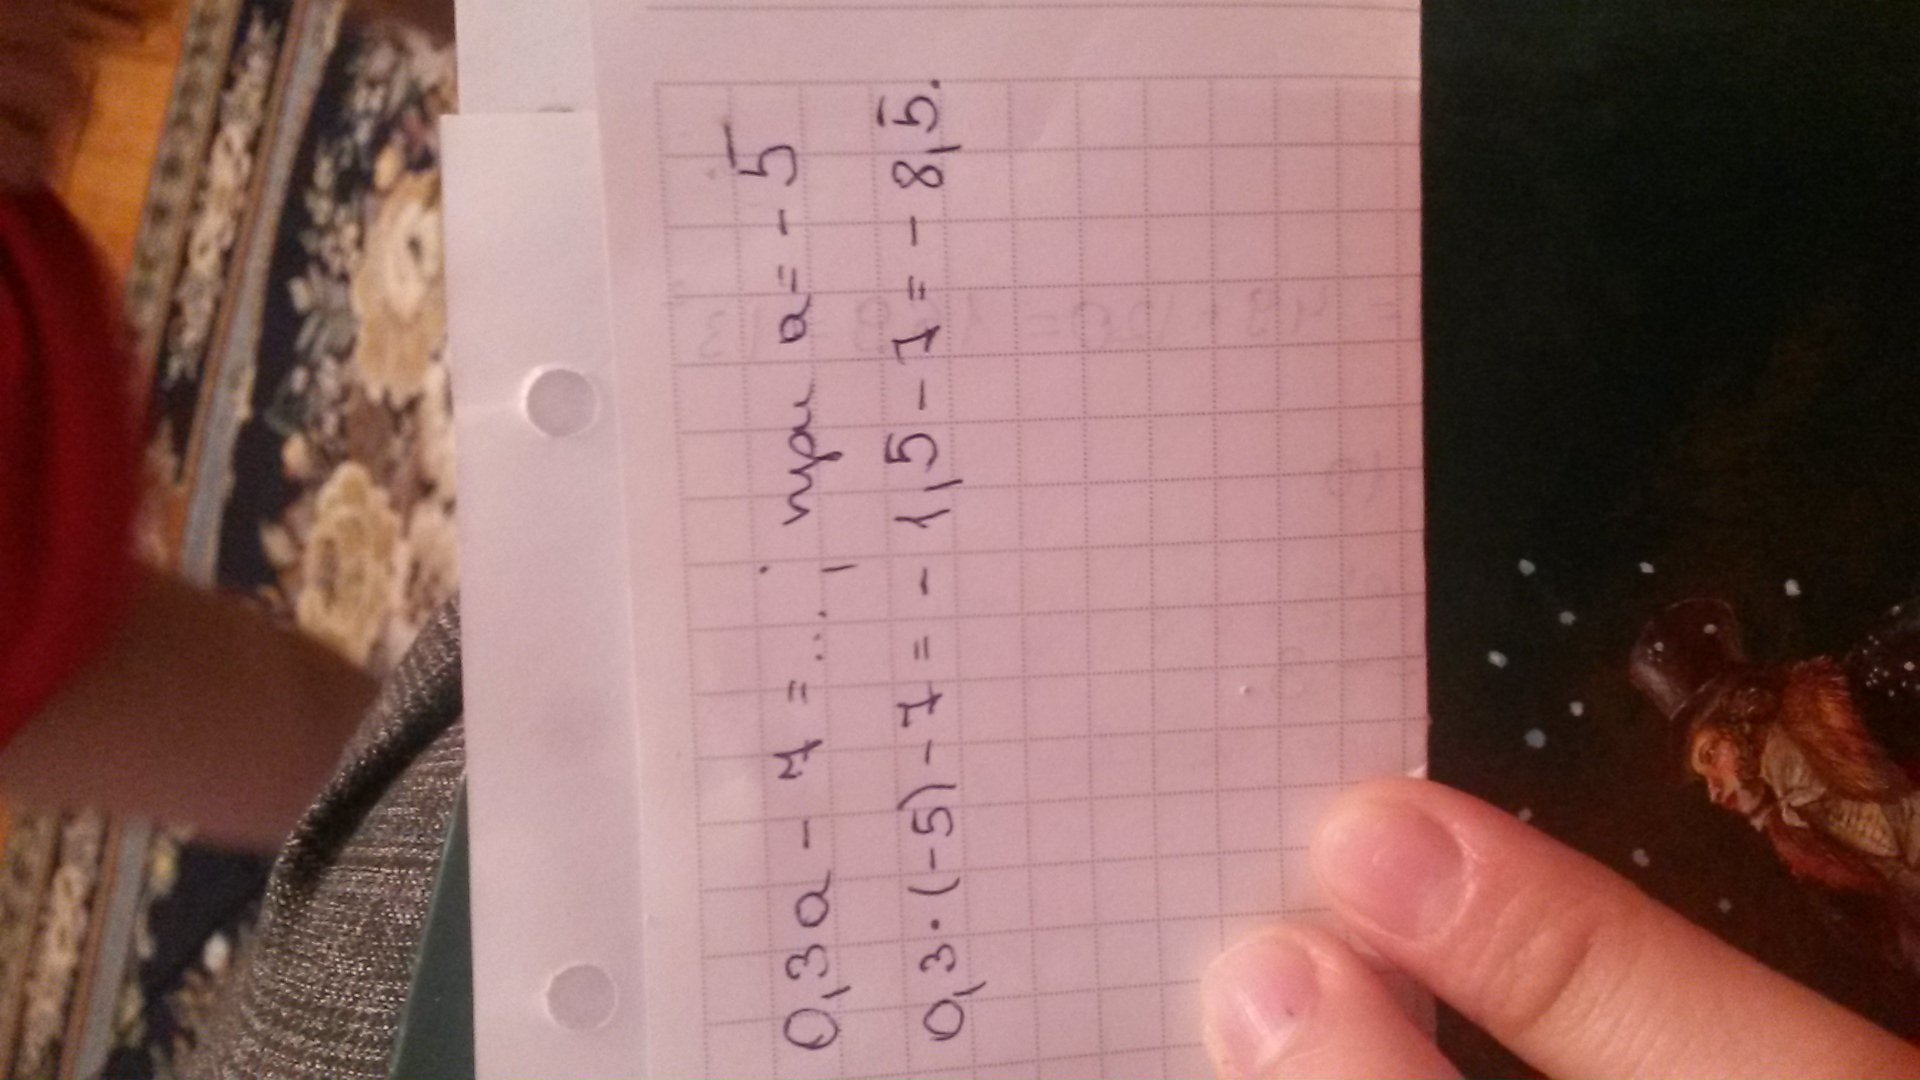 0,3a - 7 = ...; при a = - 5
0,3 · (-5) - 7 = - 1,5 - 7 = - 8,5.